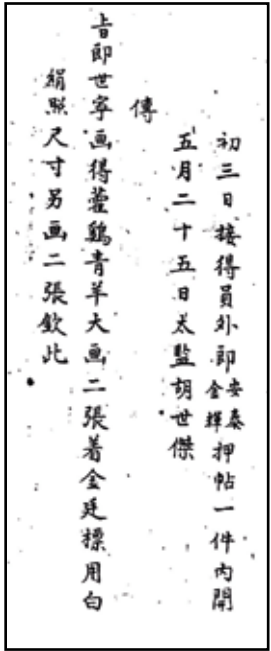 初三日接得員外郎安泰金輝押帖一件内開
五月二十五日太監胡世傑
傳
旨郎世寧画得藿鷄青羊大画二張着金廷標用白
絹照尺寸另画二張欽此